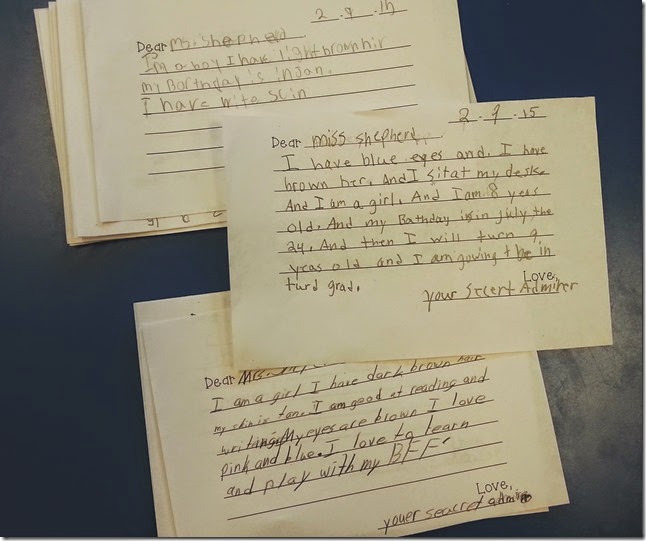 2.9.15
Dear Ms. Shepherd
I'm a boy I have light brown hir
my Borthday is in Jan.
I have wite scin
2.9.15
Dear miss shepherd
I have blue eyes and. I have
brown her. And I sit at my desk.
And I am a girl. And I am 8 yeas
old. And my Bathday is in july the
24. And then I will turn 9
yeas old and I am gowing to be in
turd grad.
Love,
your Secert Admirer
Dear Mrs.
I am a girl I have dark brown hair
my skin is tan. I am good at reading and
writing My eyes are brown I love
pink and blue. I love to learn
and play with my BFF.
Love,
youer seacret admire